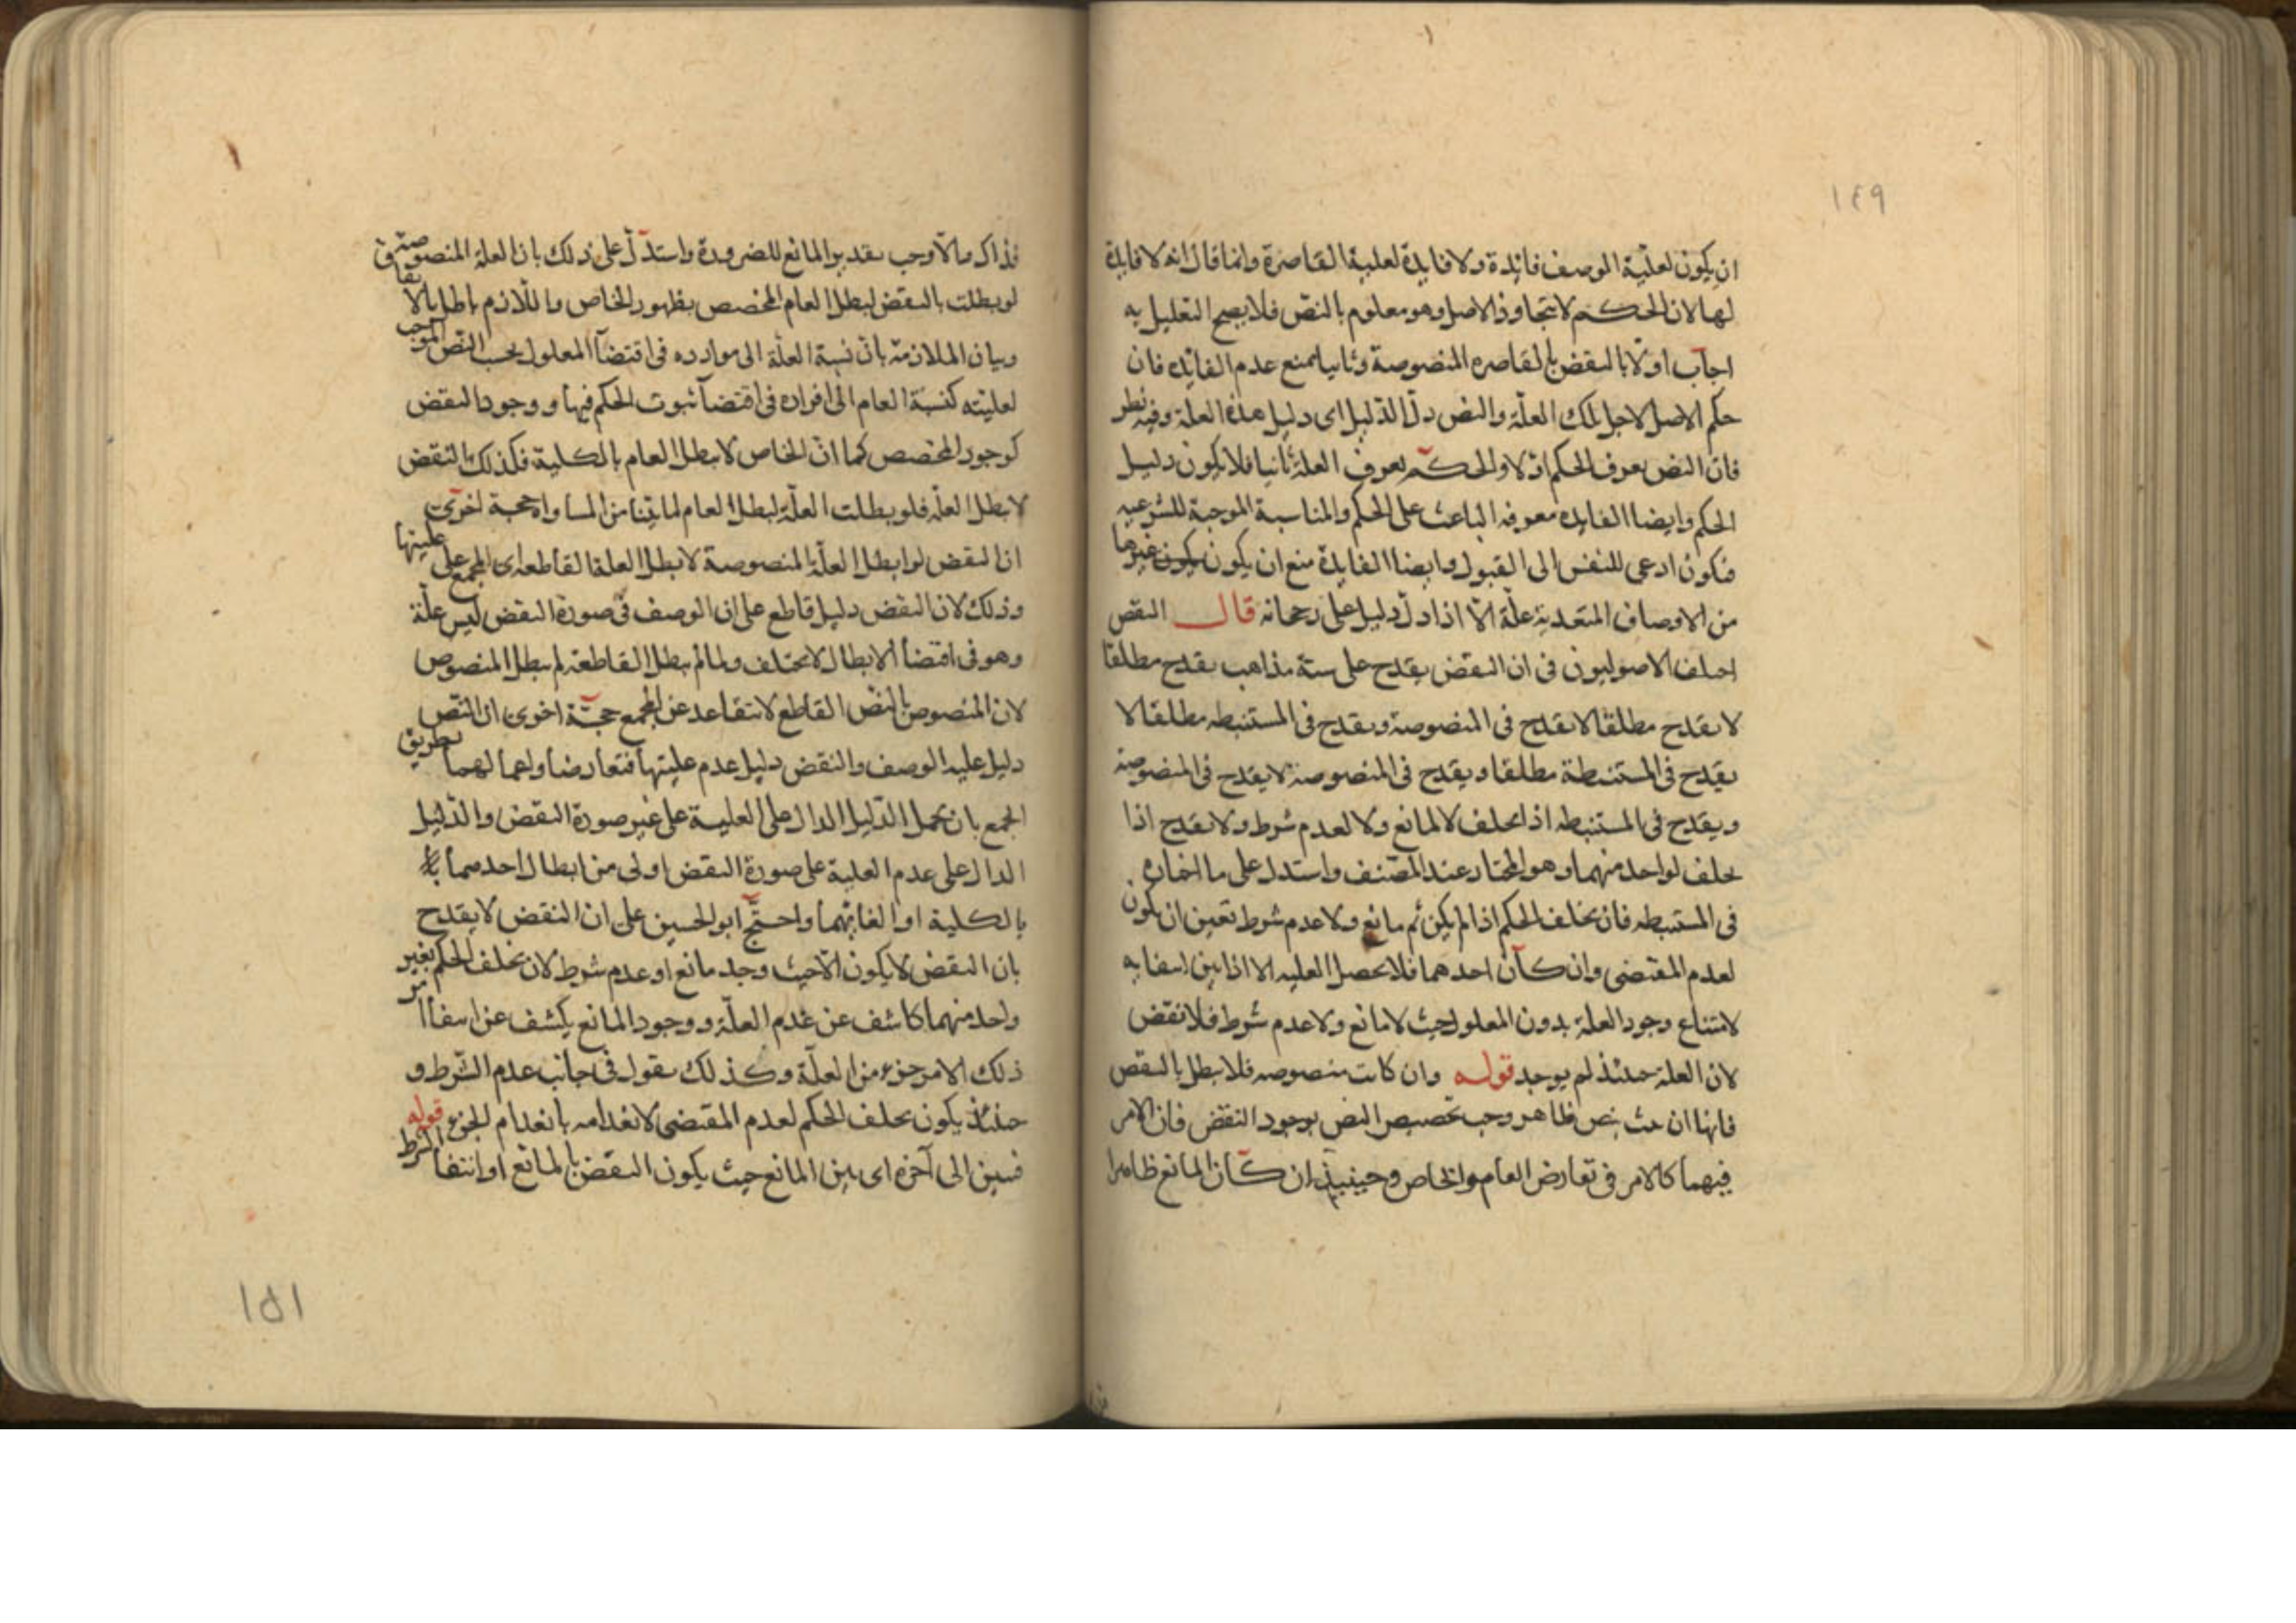 ١٤٩
ان يكون لعلية الوصف فائدة ولا فايدة لعلية القاصرة وانما قال انه لا فايدة
لها لان الحكم لا يتجاوز الاصل وهو معلوم بالنص فلا يصح التعليل به
اجاب اولا بالنقض بالقاصره المنصوصة وثانيا بمنع عدم الفائده فان
حكم الاصل لاجل تلك العلة والنص دل الدليل اى دليل هذه العلة وفيه نظر
فان النص يعرف الحكم اولا والحكم يعرف العلة ثانيا فلا يكون دليل
الحكم وايضا الفايده معرفه الباعث على الحكم والمناسبة الموجبة للشرعيه
فيكون ادعى للنفس الى القبول وايضا الفايدة منع ان يكون غيرها
من الاوصاف المتعدية علة الا اذا دل دليل على رجحانه قال النقض
اختلف الاصوليون فى ان النقض يقدح على ستة مذاهب يقدح مطلقا
لا يقدح مطلقا لا يقدح فى المنصوصة ويقدح فى المستنبطه مطلقا لا
يقدح فى المستنبطة مطلقا ويقدح فى المنصوصة لا يقدح فى المنصوصة
ويقدح فى المستنبطه اذا تخلف لا لمانع ولا لعدم شرط ولا يقدح اذا
تخلف لواحد منهما وهو المختار عند المصنف واستدل على ما اختاره
فى المستنبطه فان تخلف الحكم اذا لم يكن ثم مانع ولا عدم شرط تعين ان يكون
لعدم المقتضى وان كان احدهما فلا يحصل العليه الا اذا بين انتفا به
لامتناع وجود العلة بدون المعلول حيث لا مانع ولا عدم شرط فلا نقض
لان العلة حينئذ لم يوجد قوله وان كانت منصوصه فلا يبطل بالنقض
فانها ان ثبت بنص ظاهر وجب تخصيص النص بوجود النقض فان الامر
فيهما كالامر فى تعارض العام والخاص وحينيذ ان كان المانع ظاهرا
فذاك والا وجب تقدير المانع للضرورة واستدل على ذلك بان العلة المنصوصة
لو بطلت بالنقض لبطل العام المخصص بظهور الخاص واللازم باطل بالاتفاق
وبيان الملازمة بان نسبة العلة الى موارده فى اقتضآ المعلول بحسب النص الموجب
لعليته كنسبة العام الى افراده فى اقتضآ ثبوت الحكم فيها ووجود النقض
كوجود المخصص كما ان الخاص لا يبطل العام بالكلية فكذلك النقض
لا يبطل العلة فلو بطلت العلة لبطل العام لما بينا من المساواة حجة اخرى
ان النقض لو ابطل العلة المنصوصة لابطل العلة القاطعة اى المجمع على عليتها
وذلك لان النقض دليل قاطع على ان الوصف فى صورة النقض ليس علة
وهو فى اقتضآ الابطال لا يختلف ولما لم يبطل القاطعة لم يبطل المنصوص
لان المنصوص بالنص القاطع لا يتقاعد عن المجمع حجة اخرى ان النص
دليل علية الوصف والنقض دليل عدم عليتها فتعارضا واعمالهما بطريق
الجمع بان يحمل الدليل الدال على العلية على غير صورة النقض والدليل
الدال على عدم العلية على صورة النقض اولى من ابطال احدهما
بالكلية او الغائهما واحتج ابو الحسين على ان النقض لا يقدح
بان النقض لا يكون الا حيث وجد مانع او عدم شرط لان تخلف الحكم بغير
واحد منهما كاشف عن عدم العلة ووجود المانع يكشف عن انتفا امر
ذلك الامر جزء من العلة وكذلك يقول فى جانب عدم الشرط و
حينئذ يكون تخلف الحكم لعدم المقتضى لانعدامه بانعدام الجزء قوله
فبين الى آخره اى بين المانع حيث يكون النقض بالمانع او انتفا الشرط
١٥١